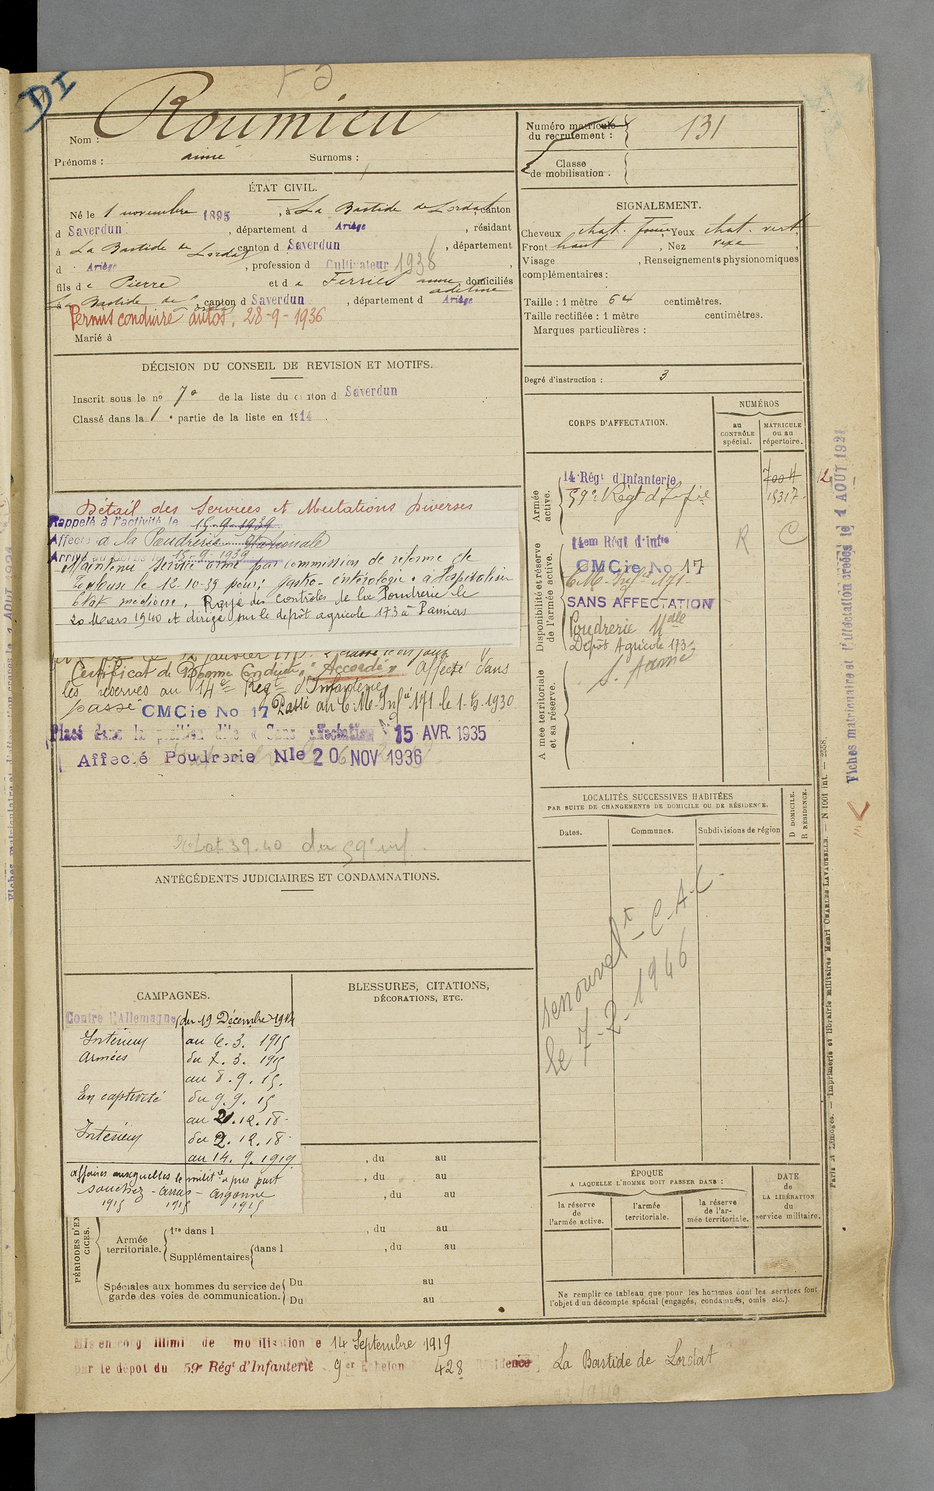 DI
Nom : Roumieu
Prénoms : aimé Surnoms :
Numéro matricule du recrutement : 131
Classe de mobilisation :
ÉTAT CIVIL.
Né le 1 novembre 1895, à La Bastide de Lordat, canton
d Saverdun, département d Ariège, résidant
à La Bastide de Lordat, canton d Saverdun, département
d Ariège, profession d Cultivateur 1938
fils de Pierre et de Ferriès domiciliés
à La Bastide de, canton d Saverdun, département d Ariège
Permis conduire autos, 28-9-1936
Marié à
SIGNALEMENT.
Cheveux chat. foncé, Yeux chat. vert
Front haut, Nez
Visage , Renseignements physionomiques
complémentaires :
Taille : 1 mètre 64 centimètres.
Taille rectifiée : 1 mètre centimètres.
Marques particulières :
Degré d'instruction : 3
DÉCISION DU CONSEIL DE REVISION ET MOTIFS.
Inscrit sous le no 7 de la liste du canton d Saverdun
Classé dans la 1e partie de la liste en 1914
Détail des Services et Mutations diverses
Rappelé à l'activité le 15-9-1939
Affecté à la Poudrerie Nationale
Arrivé au corps le 15-9-1939
Maintenu service armé par commission de réforme de
Toulouse le 12-10-39 pour :
État médiocre. Rayé des contrôles de la Poudrerie le
20 Mars 1940 et dirigé sur le dépôt agricole 173 à Pamiers
Certificat de Bonne Conduite "Accordé" Affecté dans
les réserves au 14e Régt d'Infanterie
passé CMCie No 17 Passé au C.M. Infie 171 le 1-5-1930
Placé dans la position dite « Sans affectation » 15 AVR. 1935
Affecté Poudrerie Nle 20 NOV 1936
Etat 39-40 du 59e inf.
CORPS D'AFFECTATION.
NUMÉROS
au CONTRÔLE spécial.
MATRICULE ou au répertoire.
Armée active.
14 Régt d'Infanterie
59e Régt d'Infie
15317
Disponibilité et réserve de l'armée active.
14em Régt d'Infie R C
CMCie No 17
C.M. Infie 171
SANS AFFECTATION
Poudrerie Nale
Dépôt Agricole 173
S. Armé
Armée territoriale et sa réserve.
LOCALITÉS SUCCESSIVES HABITÉES
PAR SUITE DE CHANGEMENTS DE DOMICILE OU DE RÉSIDENCE.
Dates.
Communes.
Subdivisions de région
D DOMICILE.
R RÉSIDENCE.
renouvelt C-A-C
le 7-2-1946
ANTÉCÉDENTS JUDICIAIRES ET CONDAMNATIONS.
CAMPAGNES.
Contre l'Allemagne du 19 Décembre 1914
Intérieur au 6.3.1915
Armées du 7.3.1915
au 8.9.15.
En captivité du 9.9.15
au 21.12.18
Intérieur du 2.12.18
au 14.9.1919
affaires auxquelles le milit. a pris part
souchez - arras - argonne
1915 1915 1915
BLESSURES, CITATIONS,
DÉCORATIONS, ETC.
, du au
, du au
, du au
PÉRIODES D'EXERCICES.
Armée territoriale.
1re dans l , du au
Supplémentaires dans l , du au
Spéciales aux hommes du service de garde des voies de communication.
Du au
Du au
ÉPOQUE
A LAQUELLE L'HOMME DOIT PASSER DANS :
la réserve de l'armée active.
l'armée territoriale.
la réserve de l'armée territoriale.
DATE de LA LIBÉRATION du service militaire.
Ne remplir ce tableau que pour les hommes dont les services font
l'objet d'un décompte spécial (engagés, condamnés, omis, etc.).
Mis en cong illimi de mobilisation le 14 Septembre 1919
par le dépôt du 59e Régt d'Infanterie 9er Echelon 428 Résidence, La Bastide de Lordat
Fiches matricule et d'affectation créées le 1 AOUT 1921
Paris et Limoges. — Imprimerie et librairie militaires Henri CHARLES-LAVAUZELLE. — N 1001 int. — 2558.